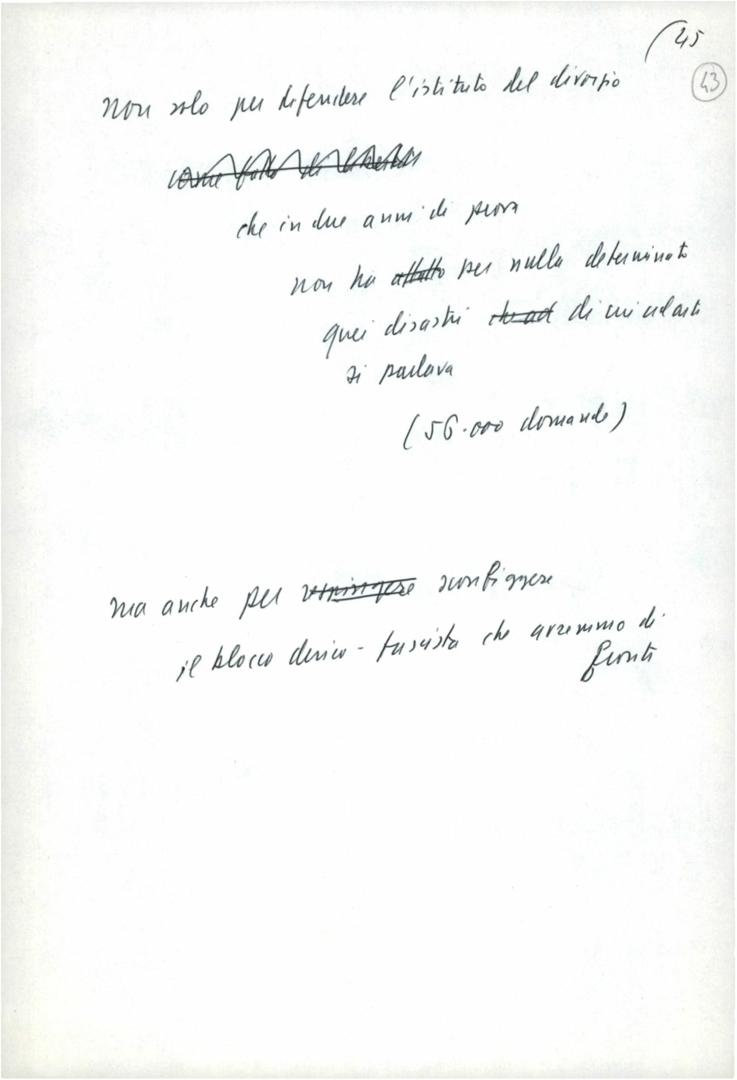 45
43
Non solo per difendere l'istituto del divorzio
che in due anni di prova
non ha affatto per nulla determinato
quei disastri di cui
si parlava
(56.000 domande)
ma anche per vincere sconfiggere
il blocco clerico-fascista che avremmo di
fronte